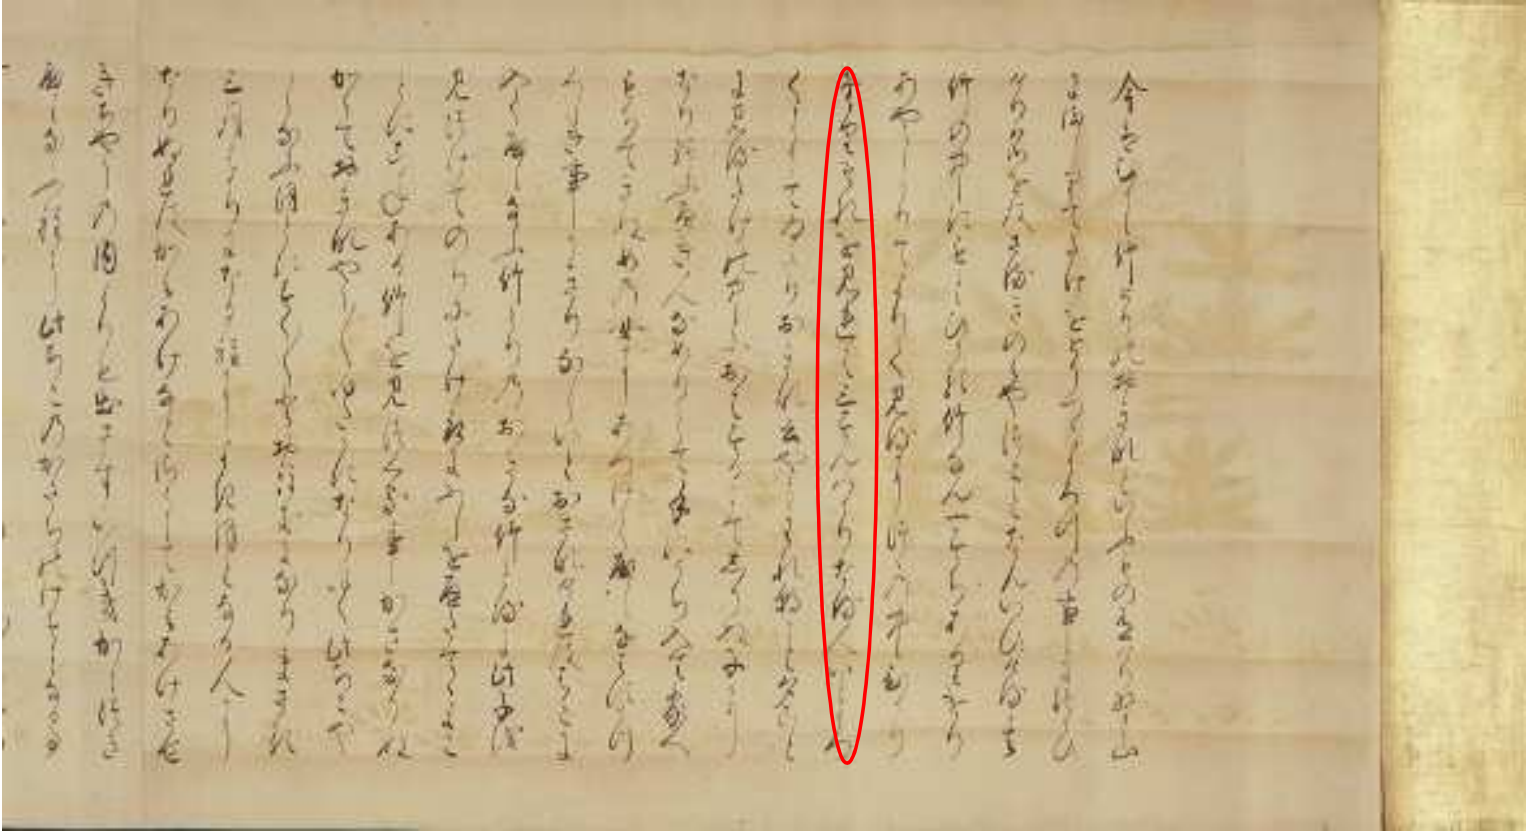 今はむかし竹とりのおきなといふもの有けり野山
にましりてたけをとりつゝよろつの事につかひ
けり名をはさるきのみやつことなんいひける其
竹の中にもとひかる竹なん一すちありけり
あやしかりてよりて見るにつゝの中ひかり
たりそれを見れは三寸はかりなる人いとうつ
くしうてゐたりおきないふやうわれあさこと
夕ことに見る竹の中におはするにてしりぬ子に
なり給ふへき人なめりとて手にうち入て家へ
もちてきぬめの女にあつけてやしなはすうつ
くしき事かきりなしいとおさなけれははこに
入てやしなふ竹とりのおきな竹とるに此子を
見つけてのちにたけとるにふしをへたてゝよこ
とにこかねある竹を見つくる事かさなりぬ
かくておきなやう〳〵ゆたかになり行此ちこや
しなふ程にすく〳〵とおほきになりまさる
三月はかりになる程によき程なる人に
なりぬれはかみあけなとさうしてかみあけさせ
きちやうの内よりも出さすいつきかしつき
やしなふ程に此ちこのかたちのけそうなる